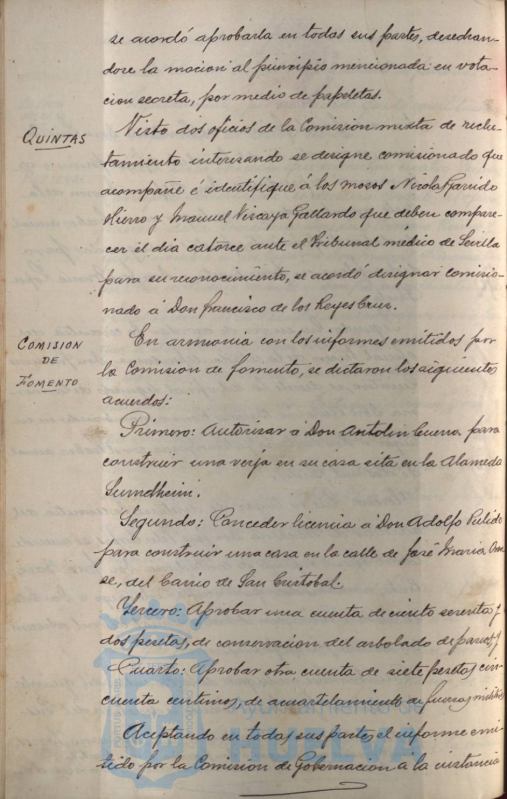 se acordó aprobarla en todas sus partes, desechan-
dose la mocion al principio mencionada en vota-
cion secreta, por medio de papeletas.
QUINTAS
Visto dos oficios de la Comision mixta de reclu-
tamiento interesando se designe comisionado que
acompañe é identifique á los mozos Nicolas Garrido
Hierro y Manuel Viscaya Gallardo que deben compare-
cer el dia catorce ante el Tribunal médico de Sevilla
para su reconocimiento, se acordó designar comisio-
nado á Don Francisco de los Reyes Cruz.
COMISION
DE
FOMENTO
En armonia con los informes emitidos por
la Comision de fomento, se dictaron los siguientes
acuerdos:
Primero: Autorizar á Don Antolin Cuerva para
construir una verja en su casa sita en la Alameda
Sundheim.
Segundo: Conceder licencia á Don Adolfo Pulido
para construir una casa en la calle de José Maria
del barrio de San Cristobal.
Tercero: Aprobar una cuenta de ciento y
dos pesetas, de conservacion del arbolado de paseos y
Cuarto: Aprobar otra cuenta de siete pesetas cin-
cuenta centimos, de acuartelamiento de fuerzas
Aceptando en todas sus partes el informe emi-
tido por la Comision de Gobernacion a la instancia
Ayuntamiento de
HUELVA